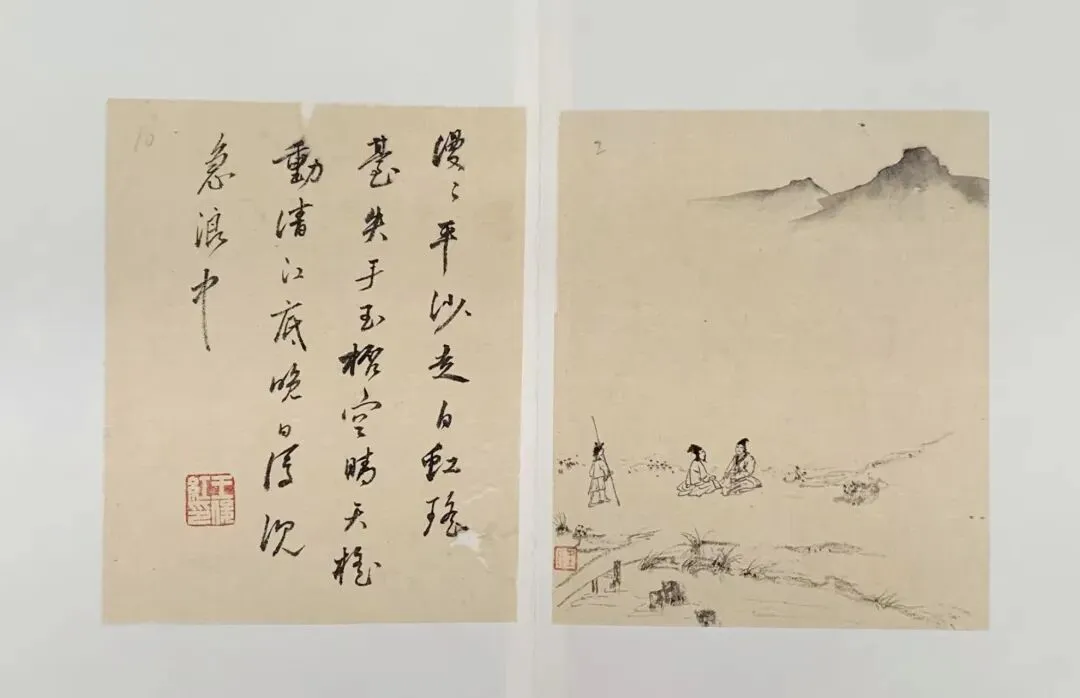 10
漫〻平沙走白虹瑤
臺失手玉桮空晴天搖
動清江底晚日浮沉
急浪中
2